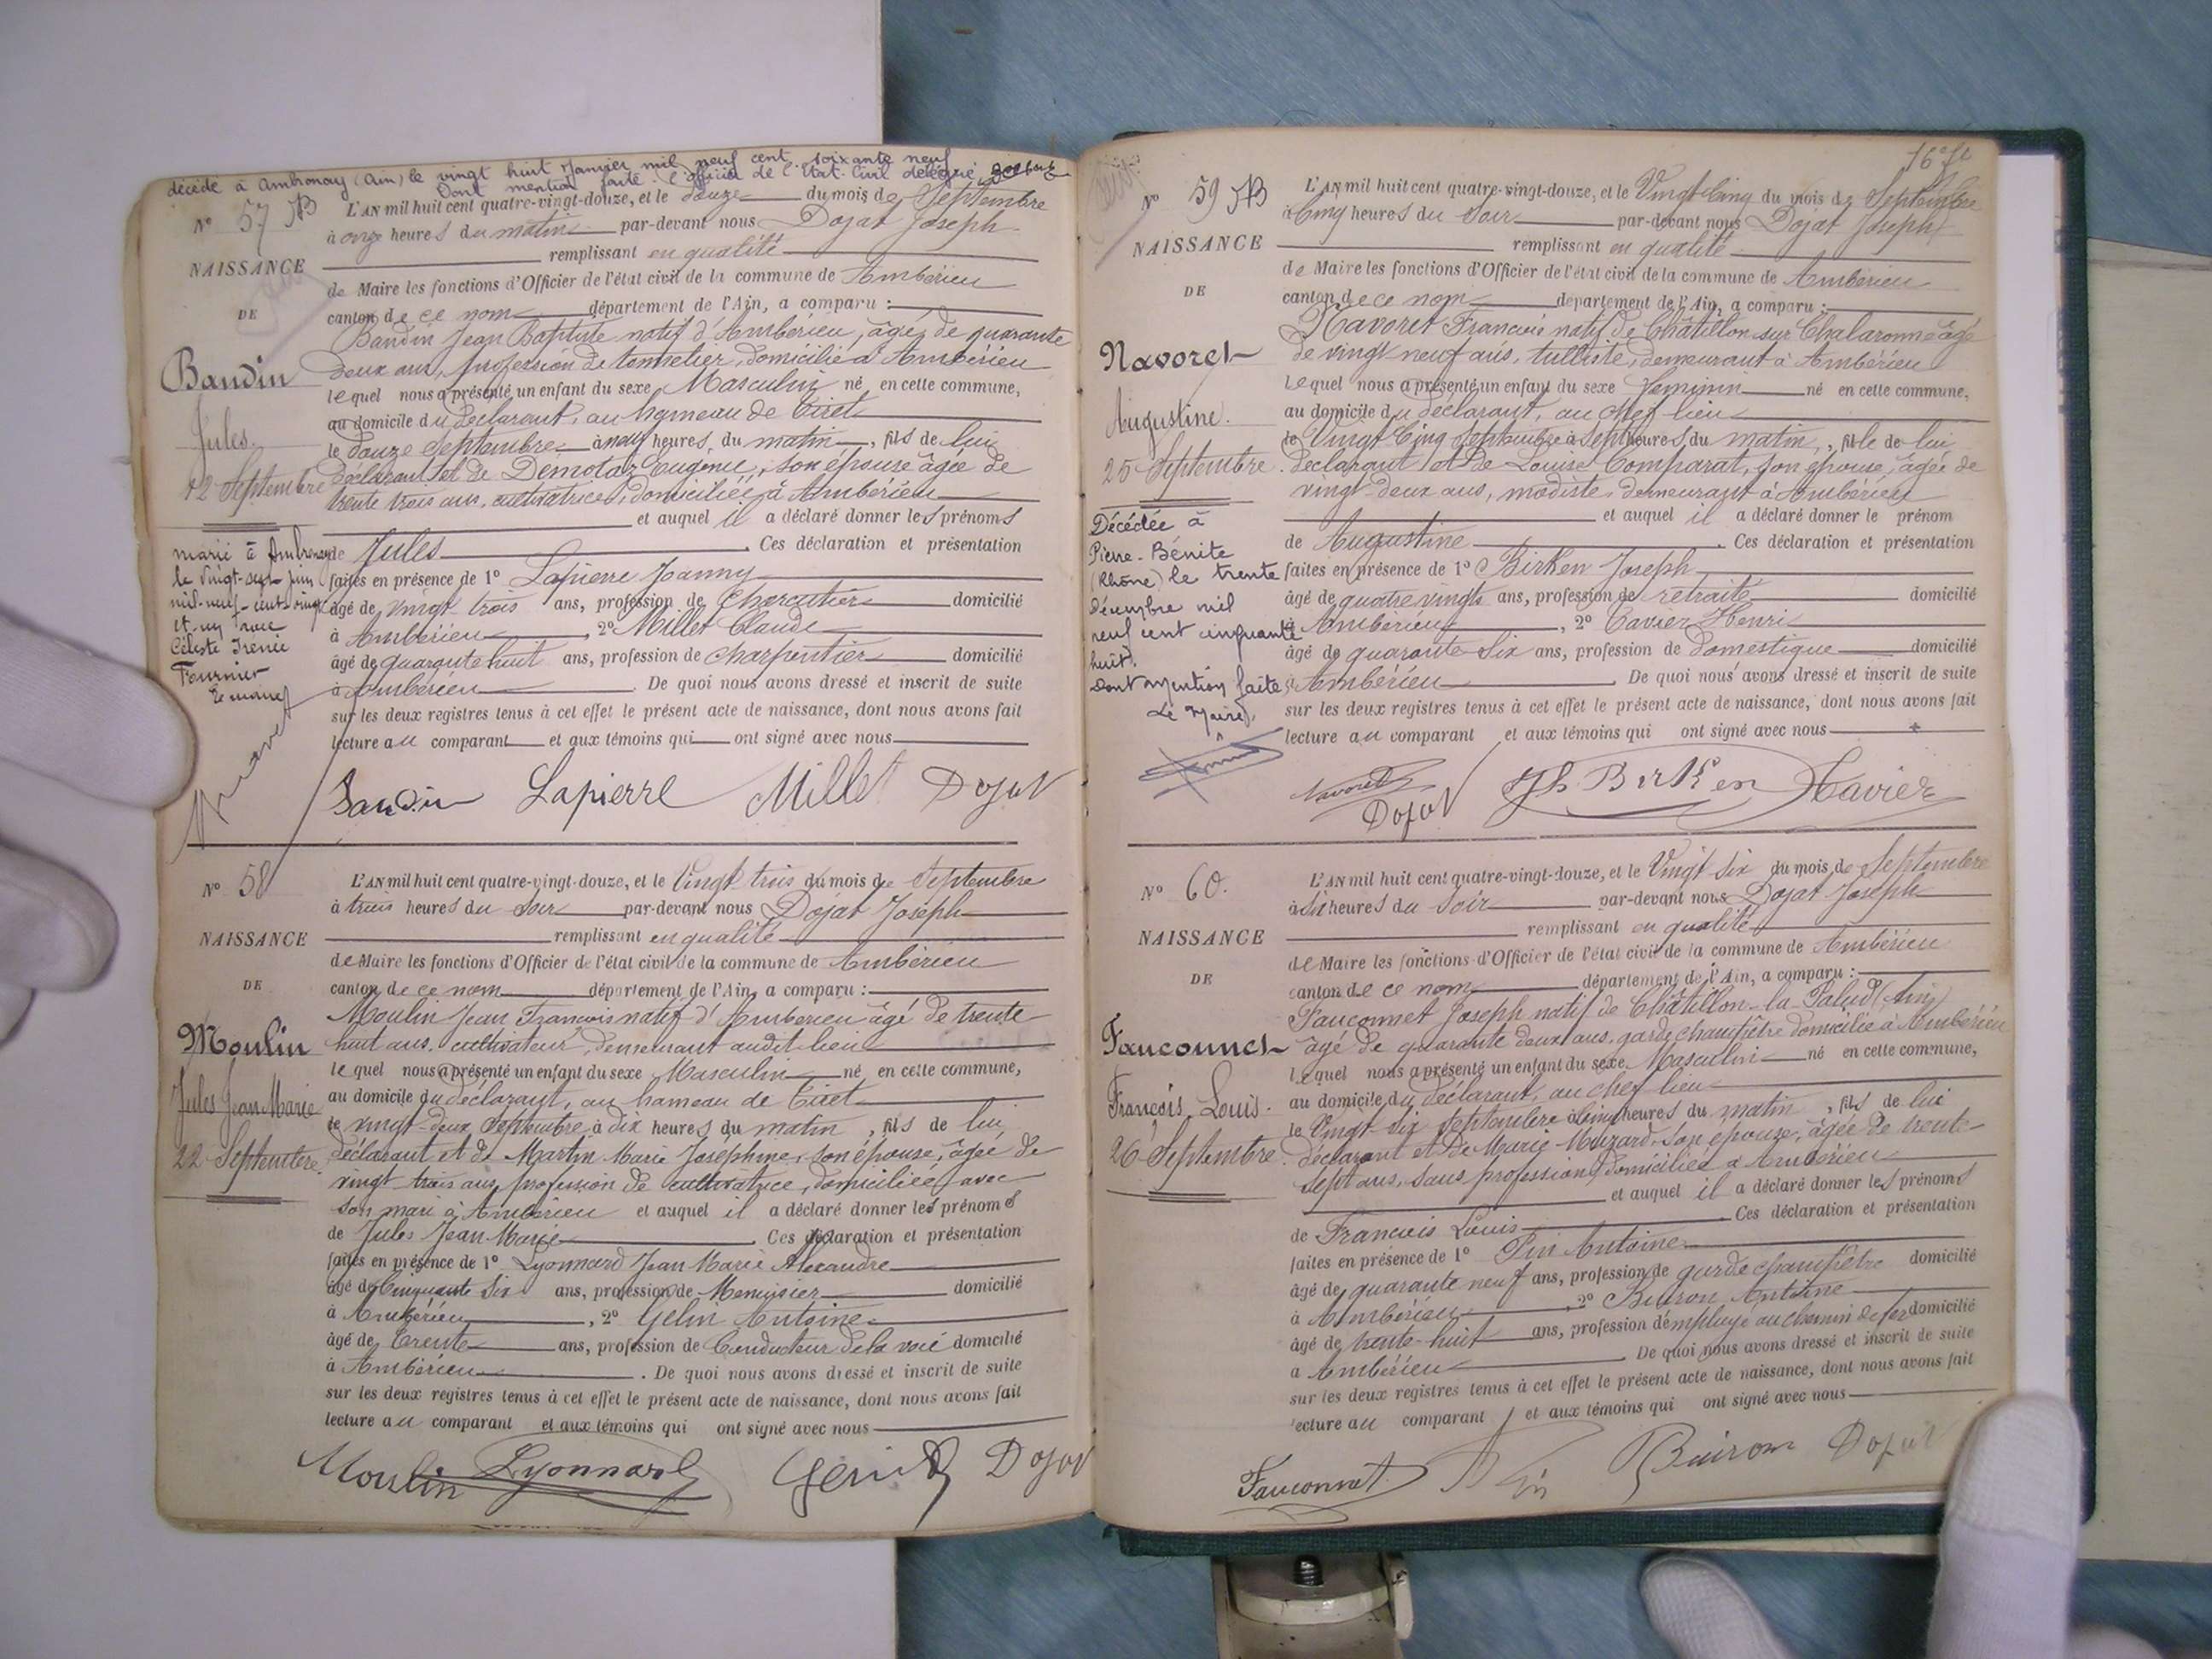 décédé à Ambronay (Ain) le vingt huit Janvier mil neuf cent soixante neuf
Dont mention faite. L'officier de l'Etat-Civil délégué
N° 57 JB
NAISSANCE
DE
Baudin
Jules
12 Septembre
marié à Ambronay
le vingt-sept juin
mil-neuf-cent-vingt
et-un avec
Céleste Irénée
Fournier
L'AN mil huit cent quatre-vingt-douze, et le douze du mois de Septembre
à onze heures du matin par-devant nous Dojat Joseph
remplissant en qualité
de Maire les fonctions d'Officier de l'état civil de la commune de Ambérieu
canton de ce nom département de l'Ain, a comparu :
Baudin Jean Baptiste natif d'Ambérieu, âgé de quarante
deux ans, profession de tonnelier, domicilié à Ambérieu
lequel nous a présenté un enfant du sexe Masculin né en cette commune,
au domicile du déclarant, au hameau de Tiret
le douze Septembre à neuf heures du matin, fils de lui
déclarant et de Demotaz Eugénie, son épouse âgée de
trente trois ans, cultivatrice, domiciliée à Ambérieu
et auquel il a déclaré donner les prénoms
de Jules Ces déclaration et présentation
faites en présence de 1° Lapierre Joanny
âgé de vingt trois ans, profession de Charcutier domicilié
à Ambérieu, 2° Millet Claude
âgé de quarante huit ans, profession de charpentier domicilié
à Ambérieu. De quoi nous avons dressé et inscrit de suite
sur les deux registres tenus à cet effet le présent acte de naissance, dont nous avons fait
lecture au comparant et aux témoins qui ont signé avec nous
Baudin Lapierre Millet Dojat
N° 58
NAISSANCE
DE
Moulin
Jules Jean Marie
22 Septembre
L'AN mil huit cent quatre-vingt-douze, et le Vingt trois du mois de Septembre
à trois heures du soir par-devant nous Dojat Joseph
remplissant en qualité
de Maire les fonctions d'Officier de l'état civil de la commune de Ambérieu
canton de ce nom département de l'Ain, a comparu :
Moulin Jean François natif d'Ambérieu âgé de trente
huit ans, cultivateur, demeurant audit lieu
lequel nous a présenté un enfant du sexe Masculin né en cette commune,
au domicile du déclarant, au hameau de Tiret
le vingt-deux Septembre à dix heures du matin, fils de lui
déclarant et de Martin Marie Joséphine, son épouse, âgée de
vingt trois ans, profession de cultivatrice, domiciliée avec
son mari à Ambérieu et auquel il a déclaré donner les prénoms
de Jules Jean Marie Ces déclaration et présentation
faites en présence de 1° Lyonnard Jean Marie Alexandre
âgé de Cinquante six ans, profession de Menuisier domicilié
à Ambérieu, 2° Gelin Antoine
âgé de trente ans, profession de Conducteur de la voie domicilié
à Ambérieu. De quoi nous avons dressé et inscrit de suite
sur les deux registres tenus à cet effet le présent acte de naissance, dont nous avons fait
lecture au comparant et aux témoins qui ont signé avec nous
Moulin Lyonnard Dojat
N° 59 JB
NAISSANCE
DE
Navoret
Augustine.
25 Septembre
Décédée à
Pierre-Bénite
(Rhône) le trente
décembre mil
neuf cent cinquante
huit.
Dont mention faite
Le Maire,
L'AN mil huit cent quatre-vingt-douze, et le Vingt Cinq du mois de Septembre
à Cinq heures du soir par-devant nous Dojat Joseph
remplissant en qualité
de Maire les fonctions d'Officier de l'état civil de la commune de Ambérieu
canton de ce nom département de l'Ain, a comparu :
Navoret François natif de Châtillon sur Chalaronne âgé
de vingt neuf ans, tulliste, demeurant à Ambérieu
lequel nous a présenté un enfant du sexe féminin né en cette commune,
au domicile du déclarant, au chef lieu
le Vingt Cinq Septembre à Sept heures du matin, fille de lui
déclarant et de Louise Comparat, son épouse, âgée de
vingt-deux ans, modiste demeurant à Ambérieu
et auquel il a déclaré donner le prénom
de Augustine. Ces déclaration et présentation
faites en présence de 1° Birken Joseph
âgé de quatre vingts ans, profession de retraité domicilié
à Ambérieu, 2° Cavier Henri
âgé de quarante-six ans, profession de Domestique domicilié
à Ambérieu. De quoi nous avons dressé et inscrit de suite
sur les deux registres tenus à cet effet le présent acte de naissance, dont nous avons fait
lecture au comparant et aux témoins qui ont signé avec nous
Navoret Dojat Jh. Birken
N° 60.
NAISSANCE
DE
Fauconnet
François, Louis.
26 Septembre
L'AN mil huit cent quatre-vingt-douze, et le Vingt six du mois de Septembre
à six heures du soir par-devant nous Dojat Joseph
remplissant en qualité
de Maire les fonctions d'Officier de l'état civil de la commune de Ambérieu
canton de ce nom département de l'Ain, a comparu :
Fauconnet Joseph natif de Châtillon-la-Palud (Ain)
âgé de quarante deux ans, garde champêtre domicilié à Ambérieu
lequel nous a présenté un enfant du sexe Masculin né en cette commune,
au domicile du déclarant, au chef lieu
le Vingt-six Septembre à cinq heures du matin, fils de lui
déclarant et de Marie Muzard, son épouse, âgée de trente-
sept ans, sans profession, domiciliée à Ambérieu
et auquel il a déclaré donner les prénoms
de François Louis. Ces déclaration et présentation
faites en présence de 1° Pin Antoine
âgé de quarante neuf ans, profession de garde champêtre domicilié
à Ambérieu, 2° Buiron Antoine
âgé de trente-huit ans, profession d'employé au chemin de fer domicilié
à Ambérieu. De quoi nous avons dressé et inscrit de suite
sur les deux registres tenus à cet effet le présent acte de naissance, dont nous avons fait
lecture au comparant et aux témoins qui ont signé avec nous
Fauconnet Pin Buiron Dojat